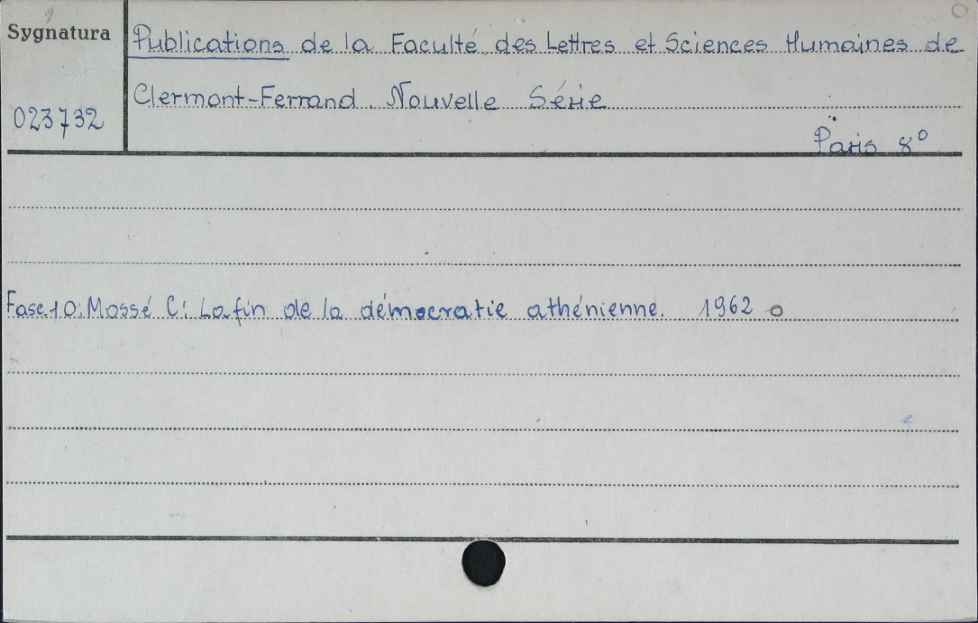 Sygnatura
Publications de la Faculté des Lettres et Sciences Humaines de
Clermont-Ferrand. Nouvelle Série
023732
Paris 8°
Fasc.10: Mossé C: La fin de la démocratie athénienne. 1962 o